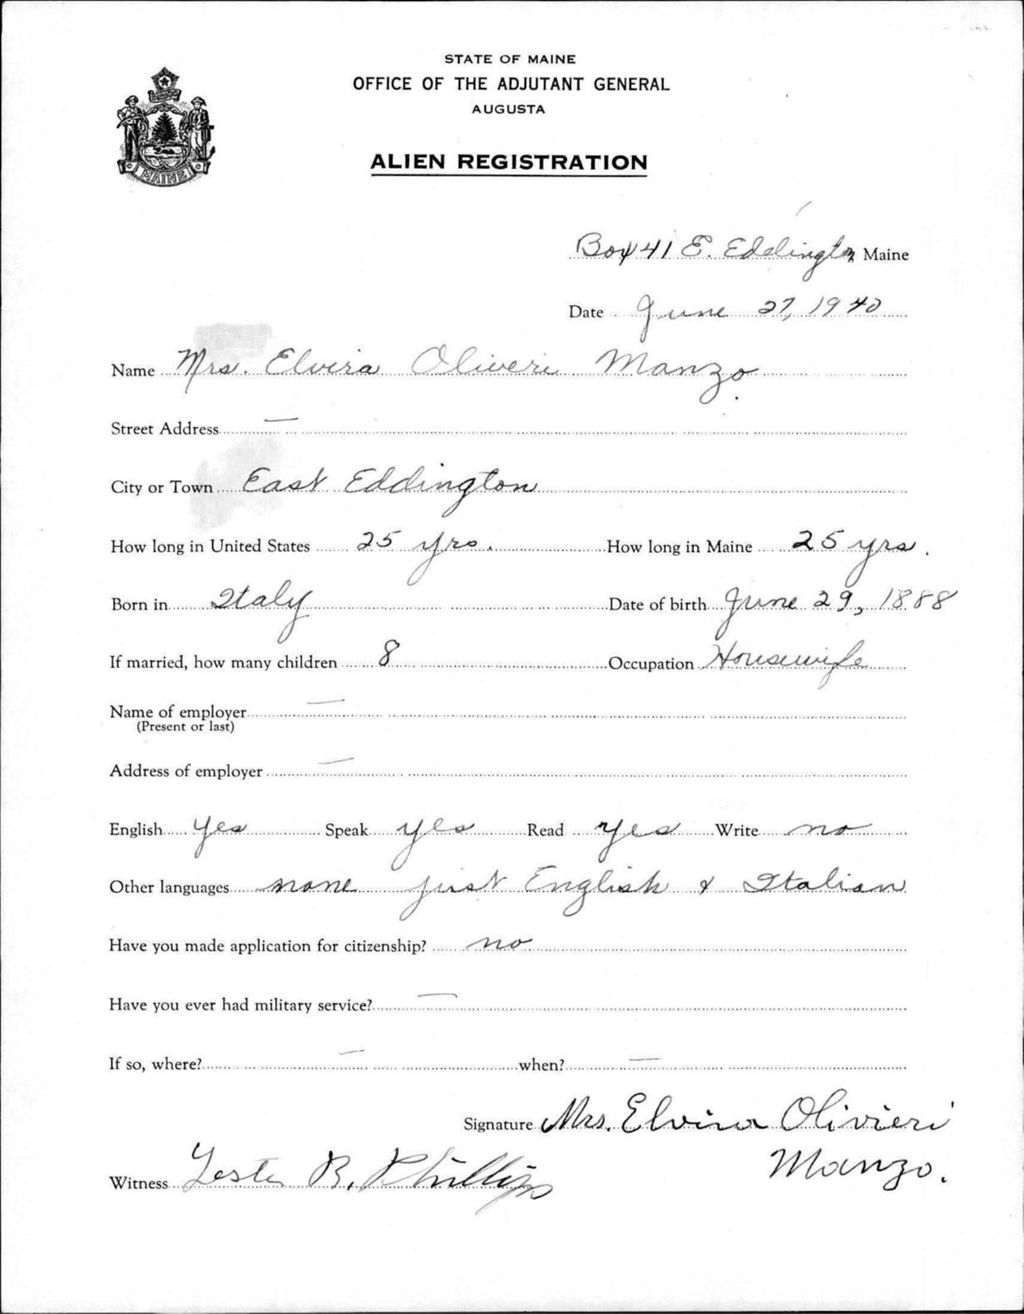 STATE OF MAINE
OFFICE OF THE ADJUTANT GENERAL
AUGUSTA
ALIEN REGISTRATION
MAINE
Box 41 E. Eddington, Maine
Date June 27, 1940
Name Mrs. Elvira Oliveri Manzo.
Street Address —
City or Town East Eddington
How long in United States 25 yrs. How long in Maine 25 yrs.
Born in Italy Date of birth June 29, 1888
If married, how many children 8 Occupation Housewife
Name of employer —
(Present or last)
Address of employer —
English yes Speak yes Read yes Write no
Other languages none just English & Italian
Have you made application for citizenship? no
Have you ever had military service? —
If so, where? — when? —
Signature Mrs. Elvira Olivieri
Manzo.
Witness Lester B. Phillips